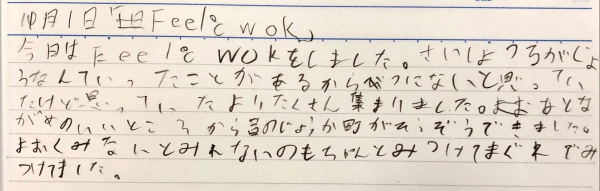 10月1日「Feelど wok」
今日は Feelど WOKをしました。さいしょ うらがじょ
うなんていったことがあるからべつにないと思ってい
たけど思っていたよりたくさん集まりました。
がめのいいところから昔のじょうか町がそうぞうできました。
よおくみないとみれないのもちゃんとみつけてまぐれでみ
つけました。